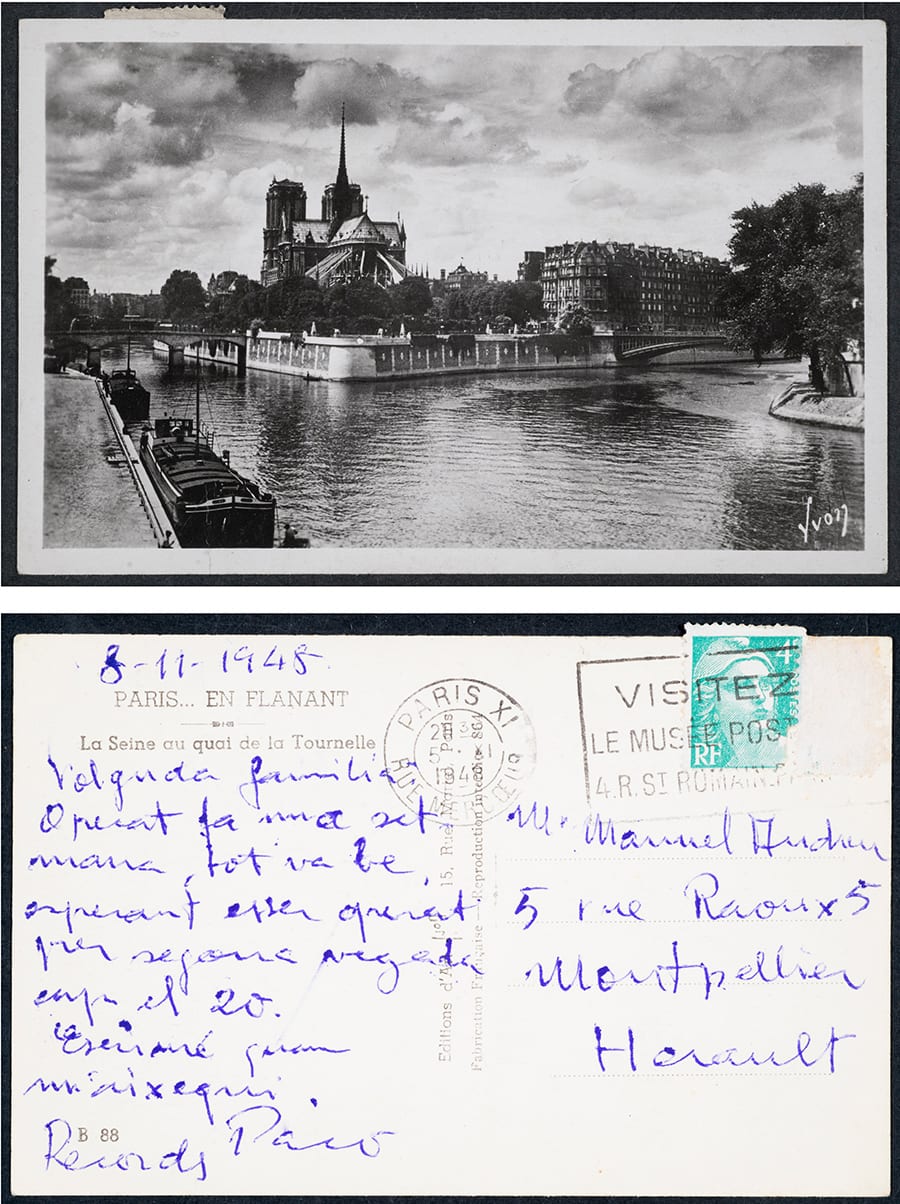 Yvon
8-11-1948
PARIS... EN FLANANT
La Seine au quai de la Tournelle
Volguda familia
Operat fa una set
mana, tot va be,
esperant esser operat
per segona vegada
cap el 20.
Escriuré quan
m'aixequi.
Records Paco
B 88
PARIS XI
VISITEZ
LE MUSÉE POST
4.R.ST ROMAIN.PA
4F
RF
Editions d'Art
15, Rue Martel, Paris
Fabrication Française — Reproduction interdite
Mr Manuel Andreu
5 rue Raoux 5
Montpellier
Herault